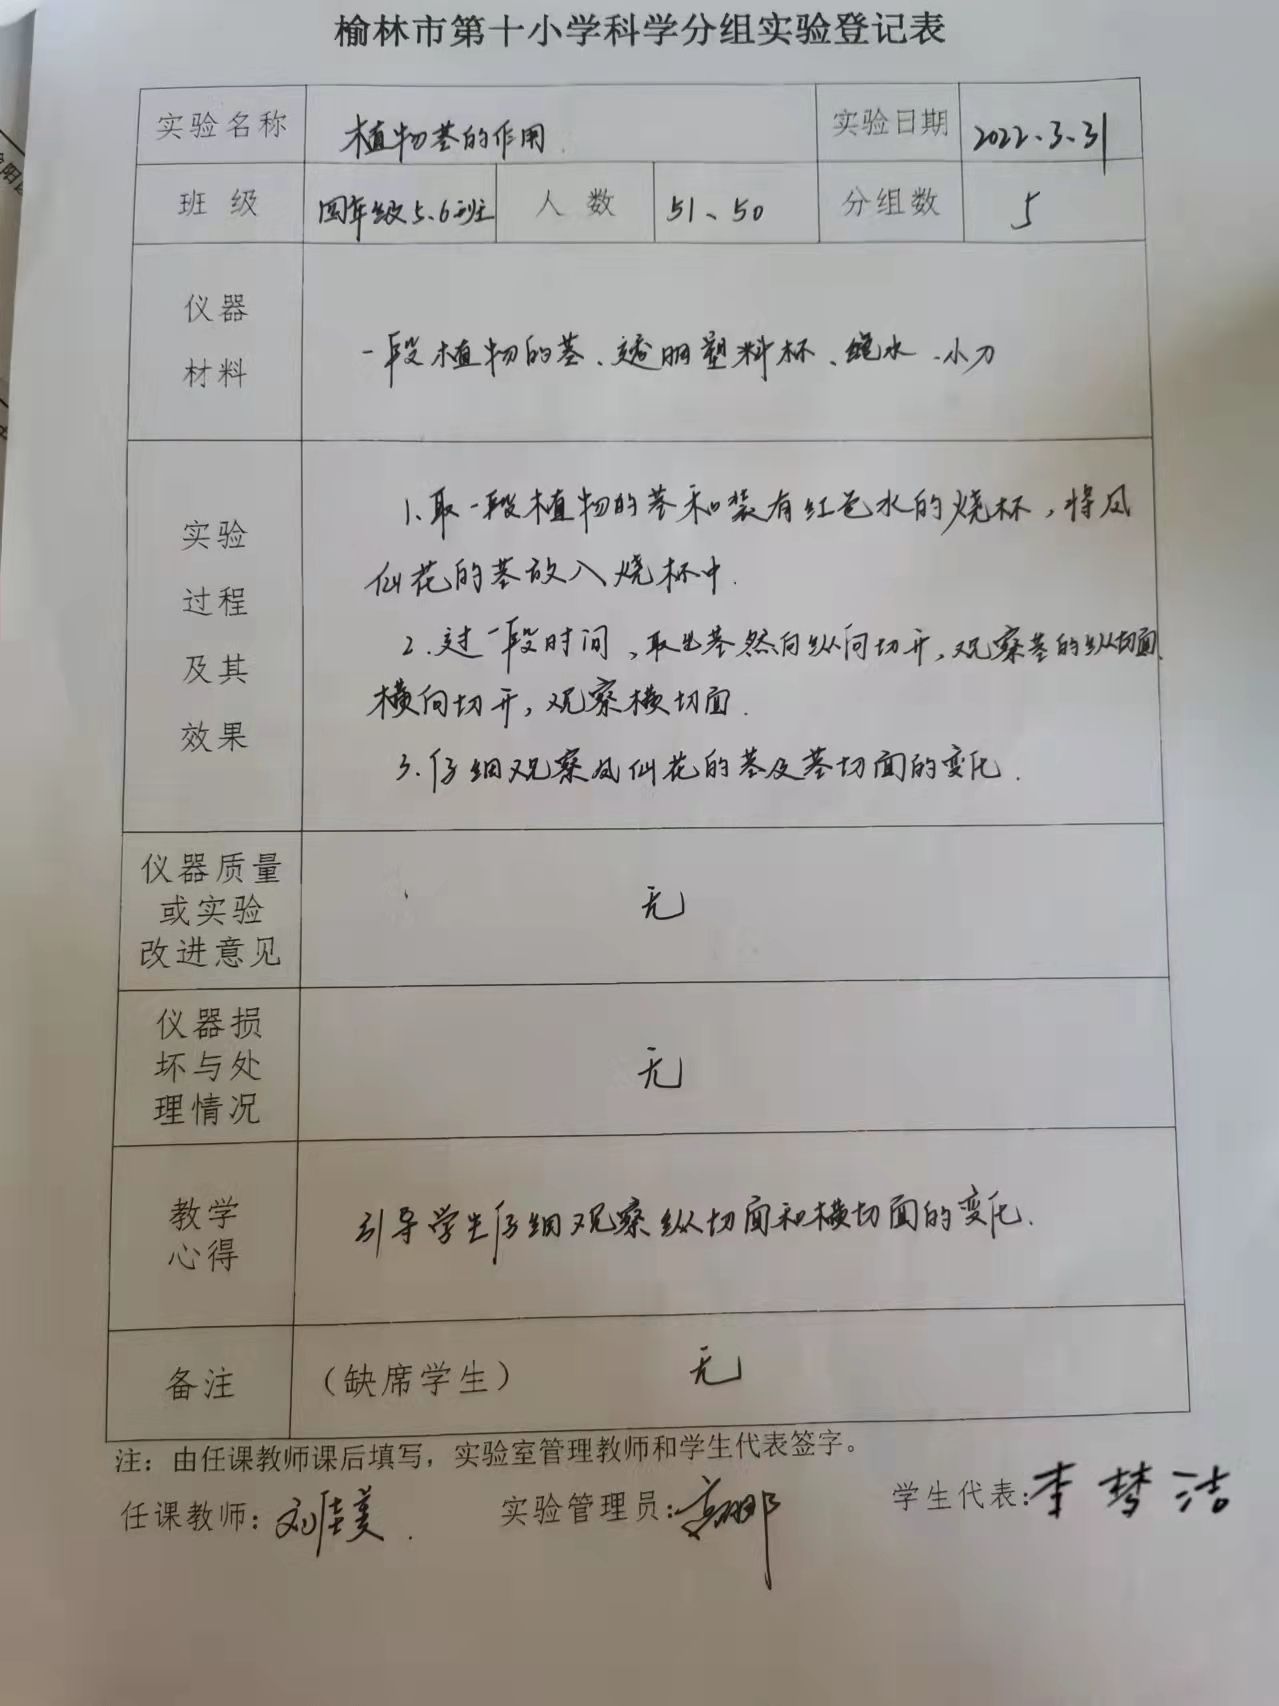 榆林市第十小学科学分组实验登记表
实验名称 植物茎的作用 实验日期 2022.3.31
班 级 四年级5、6班 人 数 51、50 分组数 5
仪器
材料
一段植物的茎、透明塑料杯、水、小刀
实验
过程
及其
效果
1.取一段植物的茎和装有红色水的烧杯,将凤
仙花的茎放入烧杯中.
2.过一段时间,取出茎然向纵向切开,观察茎的纵切面,
横向切开,观察横切面.
3.仔细观察凤仙花的茎及茎切面的变化.
仪器质量
或实验
改进意见
无
仪器损
坏与处
理情况
无
教学
心得
引导学生仔细观察纵切面和横切面的变化.
备注 (缺席学生) 无
注:由任课教师课后填写,实验室管理教师和学生代表签字。
任课教师:刘佳美. 实验管理员:高娜 学生代表:李梦洁